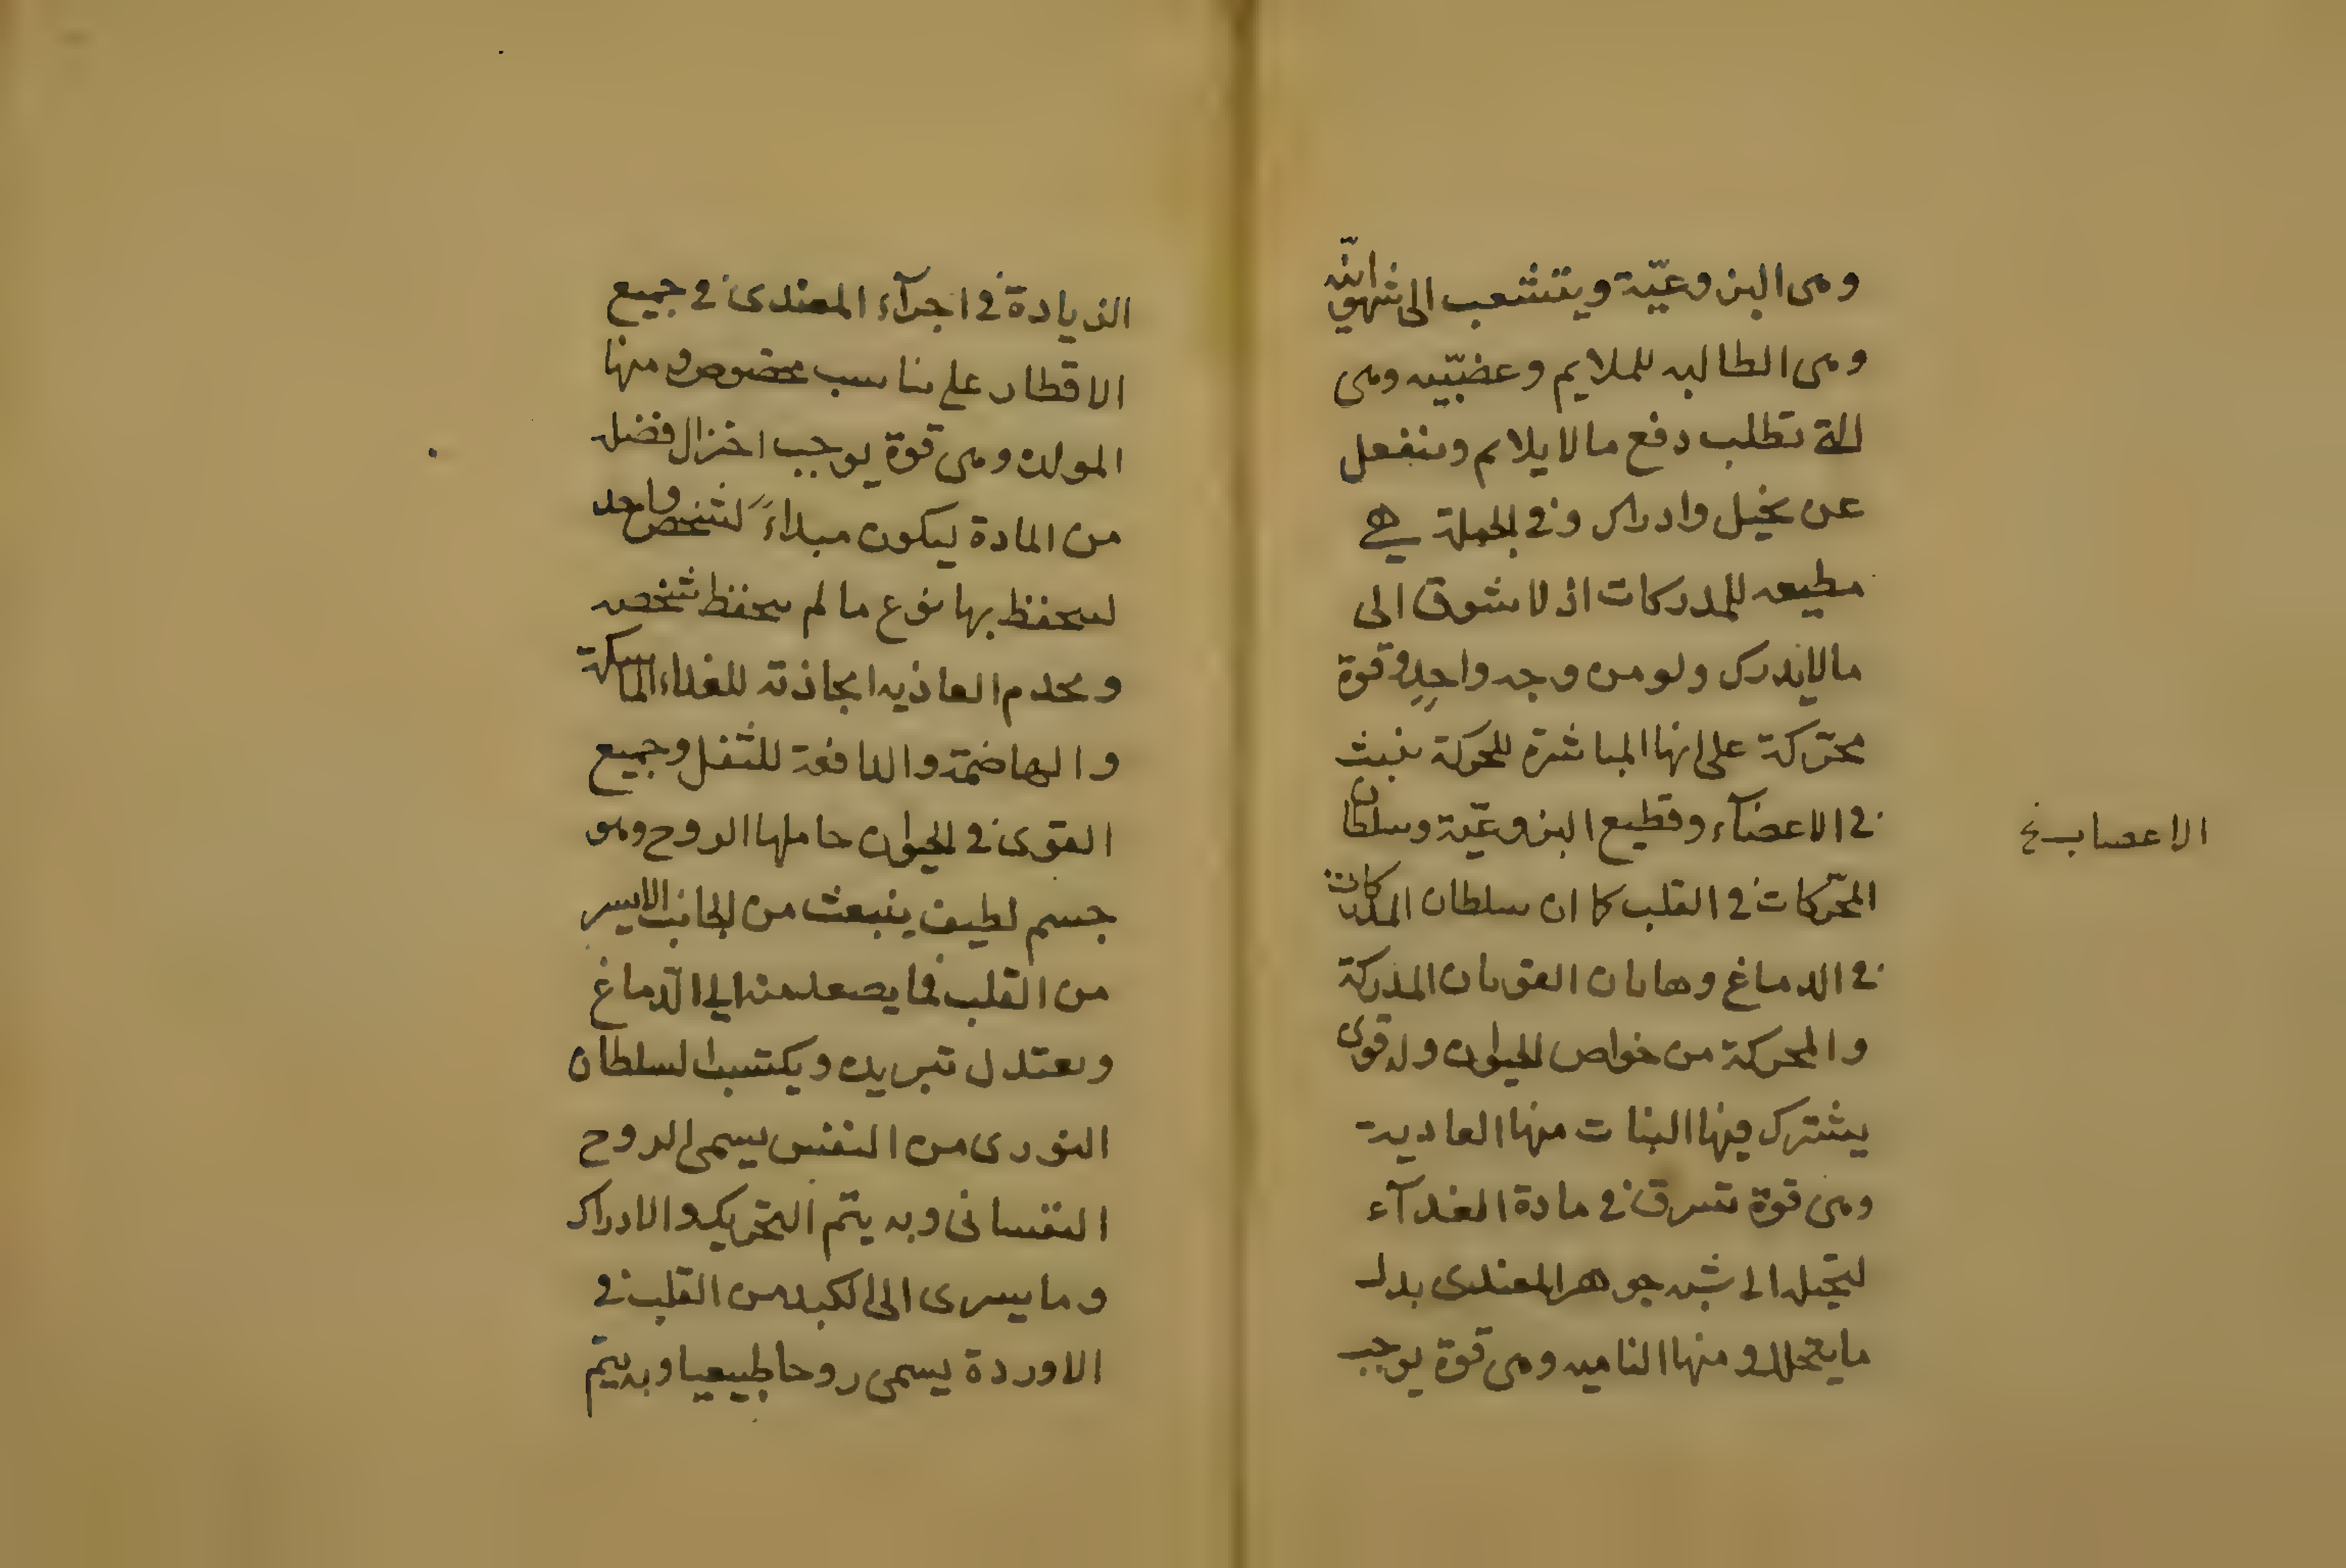 وهى النزوعيّة ويتشعب الى شهوانيّة
وهى الطالبه للملايم وعضبّيه وهى
التى تطلب دفع مالا يلايم وينفعل
عن تخيل وادراك وفى الجملة هي
مطيعه للمدركات اذ لا شوق الى
مالايدرك ولو من وجه واحدٍ وقوة
محرّكة على انها المباشرة للحركة ينبث
فى الاعضآء وقطيع النزوعيّة وسلطان
الاعصاب خ
المحّركات فى القلب كما ان سلطان المدركات
فى الدماغ وهاتان القوتان المدركة
والمحركة من خواص الحيوان وله قوى
يشترك فيها النبات منها العادية
وهى قوة تتصرف فى مادة الغدآء
لتحيله الى شبه جوهر المعتدى بدل
مايتحلل ومنها الناميه وهى قوة يوجب
الزيادة فى اجزآء المعتدى فى جميع
الاقطار على تناسب مخصوص ومنها
المولده وهى قوة يوجب اختزال فضله
من المادة ليكون مبداءً لشخص واحد
لينحفظ بها نوع ما لم ينحفظ شخصه
ويخدم العاذيه الجاذبة للغداء الماسكة
والهاضمة والدافعة للثفل وجميع
القوى فى الحيوان حاملها الروح وهو
جسم لطيف ينبعث من الجانب الايسر
من القلب فما يصعد منه الى الدّماغ
ويعتدل تبريده ويكتسب السلطان
النورى من النفس يسمى الروح
النفسانى وبه يتم التحريك والادراك
وما يسرى الى الكبد من القلب فى
الاوردة يسمى روحا طبيعيا وبه يتم